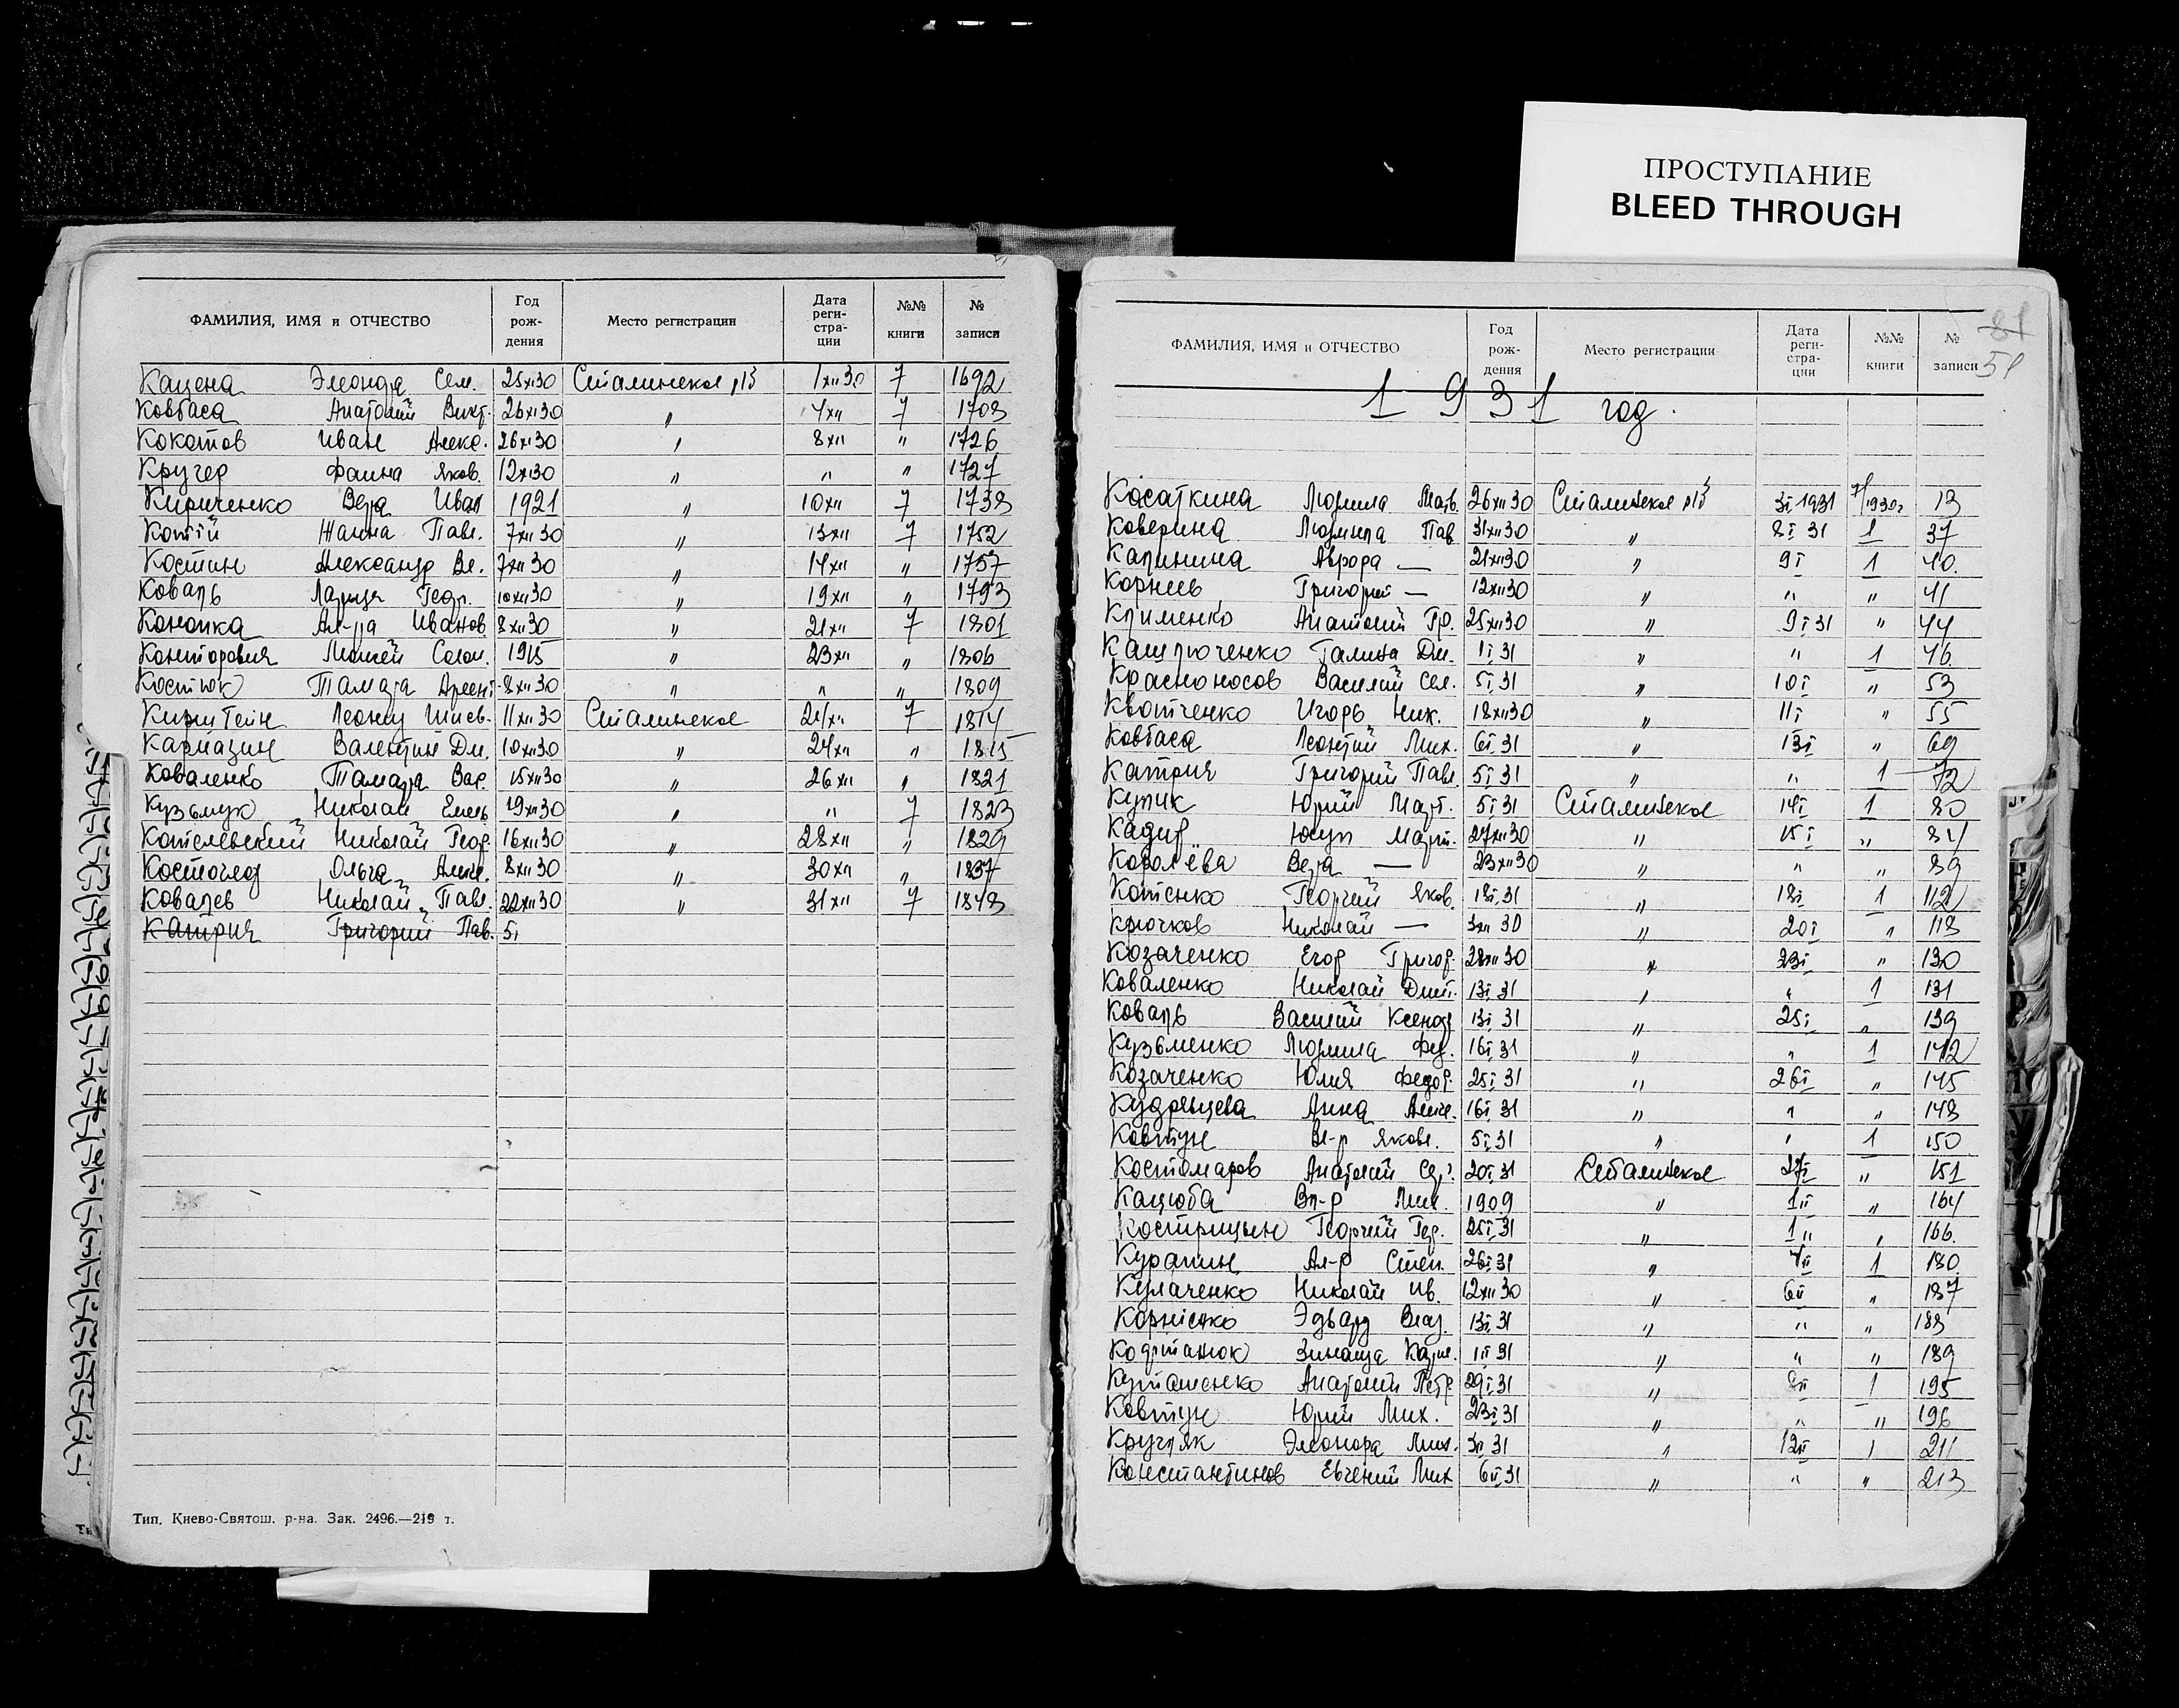 ПРОСТУПАНИЕ
BLEED THROUGH
ФАМИЛИЯ, ИМЯ и ОТЧЕСТВО Год рождения Место регистрации Дата регистрации №№ книги № записи
Кацена Сем. 25 XI 30 Сталинское 1 XII 30 7 1692
Ковбаса Анатолий Викт. 26 XI 30 " 4 XII 7 1703
Кокотов Иван Алекс. 26 XI 30 " 8 XII " 1726
Кручер Фаина Яков. 12 XI 30 " " " 1727
Кириченко Вера Иван 1921 " 10 XII 7 1738
Котій Жанна Павл. 7 XII 30 " 13 XII 7 1752
Костин Александр Вл. 7 XII 30 " 14 XII " 1757
Коваль Лариса Геор. 10 XII 30 " 19 XII " 1793
Конопка Ал-ра Иванов 8 XII 30 " 21 XII 7 1801
Канторович Моисей Солом. 1915 " 23 XII " 1806
Костюк Тамара Арсент. 8 XII 30 " " " 1809
Кирштейн Леонид 11 XII 30 Сталинское 24 XII 7 1814
Кармазин Валентин Дм. 10 XII 30 " 24 XII " 1815
Коваленко Тамара Вас. 15 XII 30 " 26 XII " 1821
Кузьмук Николай Емель 19 XII 30 " " 7 1823
Котелевский Николай Геор. 16 XII 30 " 28 XII " 1829
Костоглод Ольга Алекс. 8 XII 30 " 30 XII " 1837
Ковалев Николай Павл. 22 XII 30 " 31 XII 7 1848
Катрич Григорий Пав. 5 I
Тип. Киево-Святош. р-на. Зак. 2496.—219 т.
81
51
ФАМИЛИЯ, ИМЯ и ОТЧЕСТВО Год рождения Место регистрации Дата регистрации №№ книги № записи
1931 год.
Косаткина Людмила Матв. 26 XII 30 Сталинское 3 I 1931 7/1930г 13
Коверина Людмила Пав 31 XII 30 " 8 I 31 1 37
Калинина Аврора — 21 XII 30 " 9 I 1 40.
Корнев Григорий — 12 XII 30 " " " 41
Клименко Анатолий Гр. 25 XII 30 " 9 I 31 " 44
Галина Дм. 1 I 31 " " 1 46.
Красноносов Василий Сем. 5 I 31 " 10 I " 53
Квотченко Игорь Ник. 18 XII 30 " 11 I " 55
Ковбаса Леонтий Мих. 6 I 31 " 13 I " 69
Катрич Григорий Павл. 5 I 31 " " 1 72
Кулик Юрий Март. 5 I 31 Сталинское 14 I 1 80
Март. 27 XII 30 " 15 I " 84
Королёва Вера — 23 XII 30 " " " 89
Котенко Георгий Яков. 18 I 31 " 18 I 1 112
Крючков Николай — 3 XII 30 " 20 I " 118
Козаченко Егор Григор. 28 XII 30 " 23 I " 130
Коваленко Николай Дмит. 13 I 31 " " 1 131
Коваль Василий 13 I 31 " 25 I " 139
Кузьменко Людмила Фед. 16 I 31 " " 1 142
Козаченко Юлия Федор. 25 I 31 " 26 I " 145
Кудрявцева Анна Алекс. 16 I 31 " " " 148
Ковтун Вл-р Яковл. 5 I 31 " " 1 150
Костомаров Анатолий 20 I 31 Сталинское 27 I " 151
Кацюба Вл-р Мих. 1909 " 1 II " 164
Кострицын Георгий 25 I 31 " 1 II " 166.
Курапин Ал-р Степ. 26 I 31 " 4 II 1 180
Кулаченко Николай Ив. 12 XII 30 " 6 II " 187
Корниенко Эдвард Влад. 13 I 31 " " " 188
Зинаида 1 II 31 " " " 189
Анатолий Петр. 29 I 31 " 8 II 1 195
Ковтун Юрий Мих. 23 I 31 " " " 196
Кругляк Элеонора Мих. 3 II 31 " 12 II 1 211
Константинов Евгений Мих 6 II 31 " " " 213